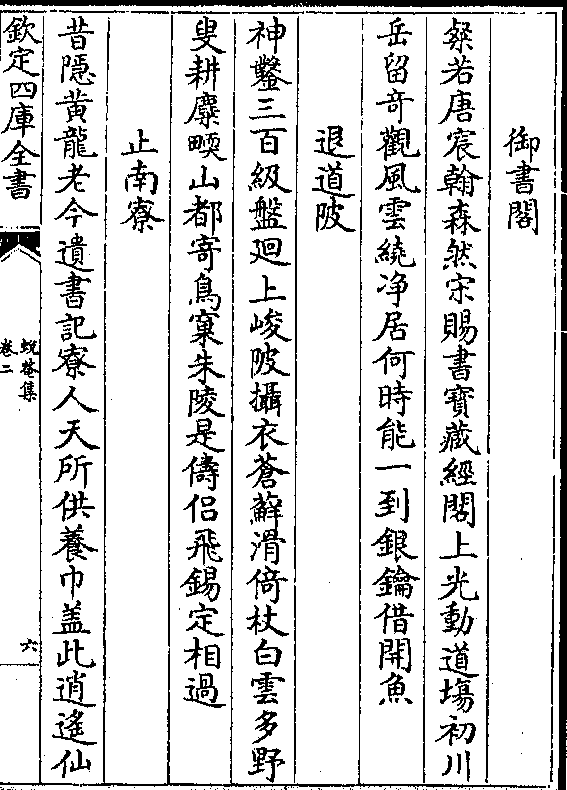 御書閣
粲若唐宸翰森然宋賜書寶藏經閣上光動道塲初川
岳留竒觀風雲繞净居何時能一到銀鑰借開魚
退道陂
神鑿三百級盤廻上峻陂攝衣蒼蘚滑倚杖白雲多野
叟耕麋畽山都寄鳥窠朱陵是儔侣飛錫定相過
止南寮
昔隠黄龍老今遺書記寮人天所供養巾盖此逍遙仙
欽定四庫全書
蜕菴集
卷二
六